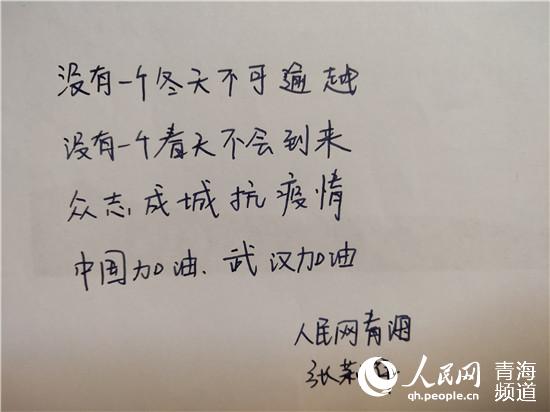 没有一个冬天不可逾越
没有一个春天不会到来
众志成城抗疫情
中国加油.武汉加油
人民网青海
张
人民网 青海频道
qh.people.cn